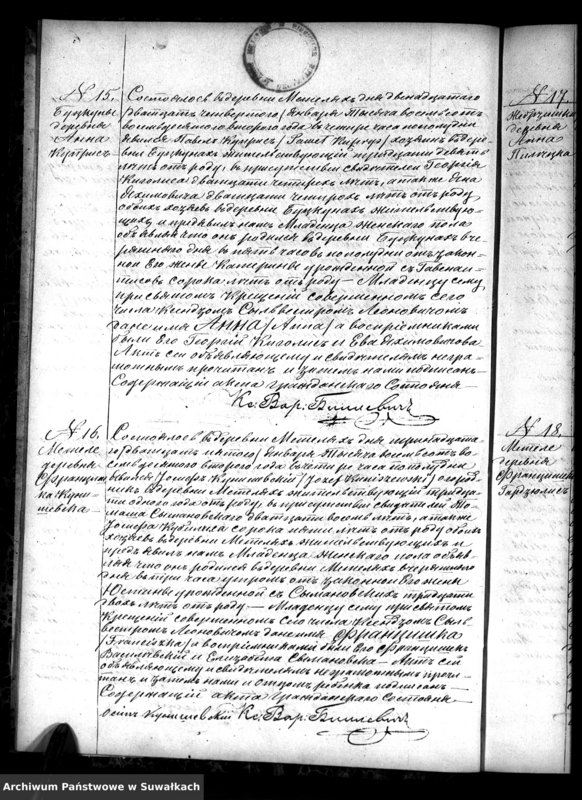 N 15.
Буцкуне
деревня
Анна
Куприс
Состоялось въ деревни Метеляхъ дня двенадцатаго
/двадцать четвертого/ Января тысяча восемьсотъ
восемьдесятого второго года въ четыре часа пополудни
явился Павелъ Куприсъ хозяинъ въ дере-
вни Буцкунахъ жительствующій тридцати девяти
летъ отъ роду, въ присутствіи свидетелей Георгія
двадцати четырехъ летъ, а также
двадцати четырехъ летъ отъ роду
обоихъ хозяевъ въ деревни Буцкунахъ жительствую-
щихъ, и предъявилъ намъ Младенца женского пола
объявляя что онъ родился въ деревни Буцкунахъ вче-
рашняго дня въ пять часовъ пополудни отъ закон-
ной Его жены Катерины урожденной
сорока летъ отъ роду — Младенцу сему
при святомъ Крещеніи совершенномъ сего
числа Ксендзомъ Сильвестромъ Леоновичемъ
дано имя АННА /Anna/ а воспріемниками
были Его Георгій и Ева
Актъ сей объявляющему и свидетелямъ негра-
мотнымъ прочитанъ и нами подписанъ
Содержащій акта гражданского Состоянія —
Кс: Вар: Биллевичъ
N 16.
Метеле
деревня
Францишка
Куни-
шевска
Состоялось въ деревни Метеляхъ дня тринадцата-
го /двадцать пятого/ Января тысяча восемьсотъ во-
семьдесятого второго года въ четыре часа пополудни
явился Іосифъ Кунишевскій /Józef Kuniszewski/ огород-
никъ въ деревни Метеляхъ жительствующій тридца-
ти одного года отъ роду, въ присутствіи свидетелей То-
маша Сымановского двадцати восемь летъ, а также
Іосифа сорока пяти летъ отъ роду обоихъ
хозяевъ въ деревни Метеляхъ жительствующихъ и
предъявилъ намъ Младенца женского пола объяв-
ляя что онъ родился въ деревни Метеляхъ вчерашняго
дня въ три часа утромъ отъ законной Его жены
Юстины урожденной съ Сымановскихъ тридцати
двохъ летъ отъ роду — Младенцу сему при святомъ
Крещеніи совершенномъ Сего числа Ксендзомъ Сильве-
стромъ Леоновичемъ дано имя ФРАНЦИШКА
/Franciszka/ а воспріемниками были Его Францишекъ
Василевскій и Елизабета Сымановска — Актъ сей
объявляющему и свидетелямъ неграмотнымъ прочи-
танъ и нами и отцомъ ребенка подписанъ —
Содержащій акта Гражданского Состоянія —
Осипъ Кунишевскій Кс: Вар: Биллевичъ
N 17.
деревня
Анна
N 18.
Метеле
деревня
Францишка
Archiwum Państwowe w Suwałkach